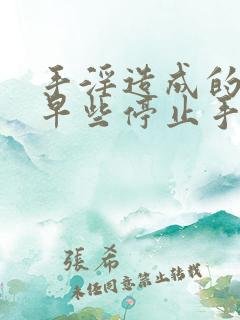 手淫造成的
早些停止手
張希
未经同意禁止转载